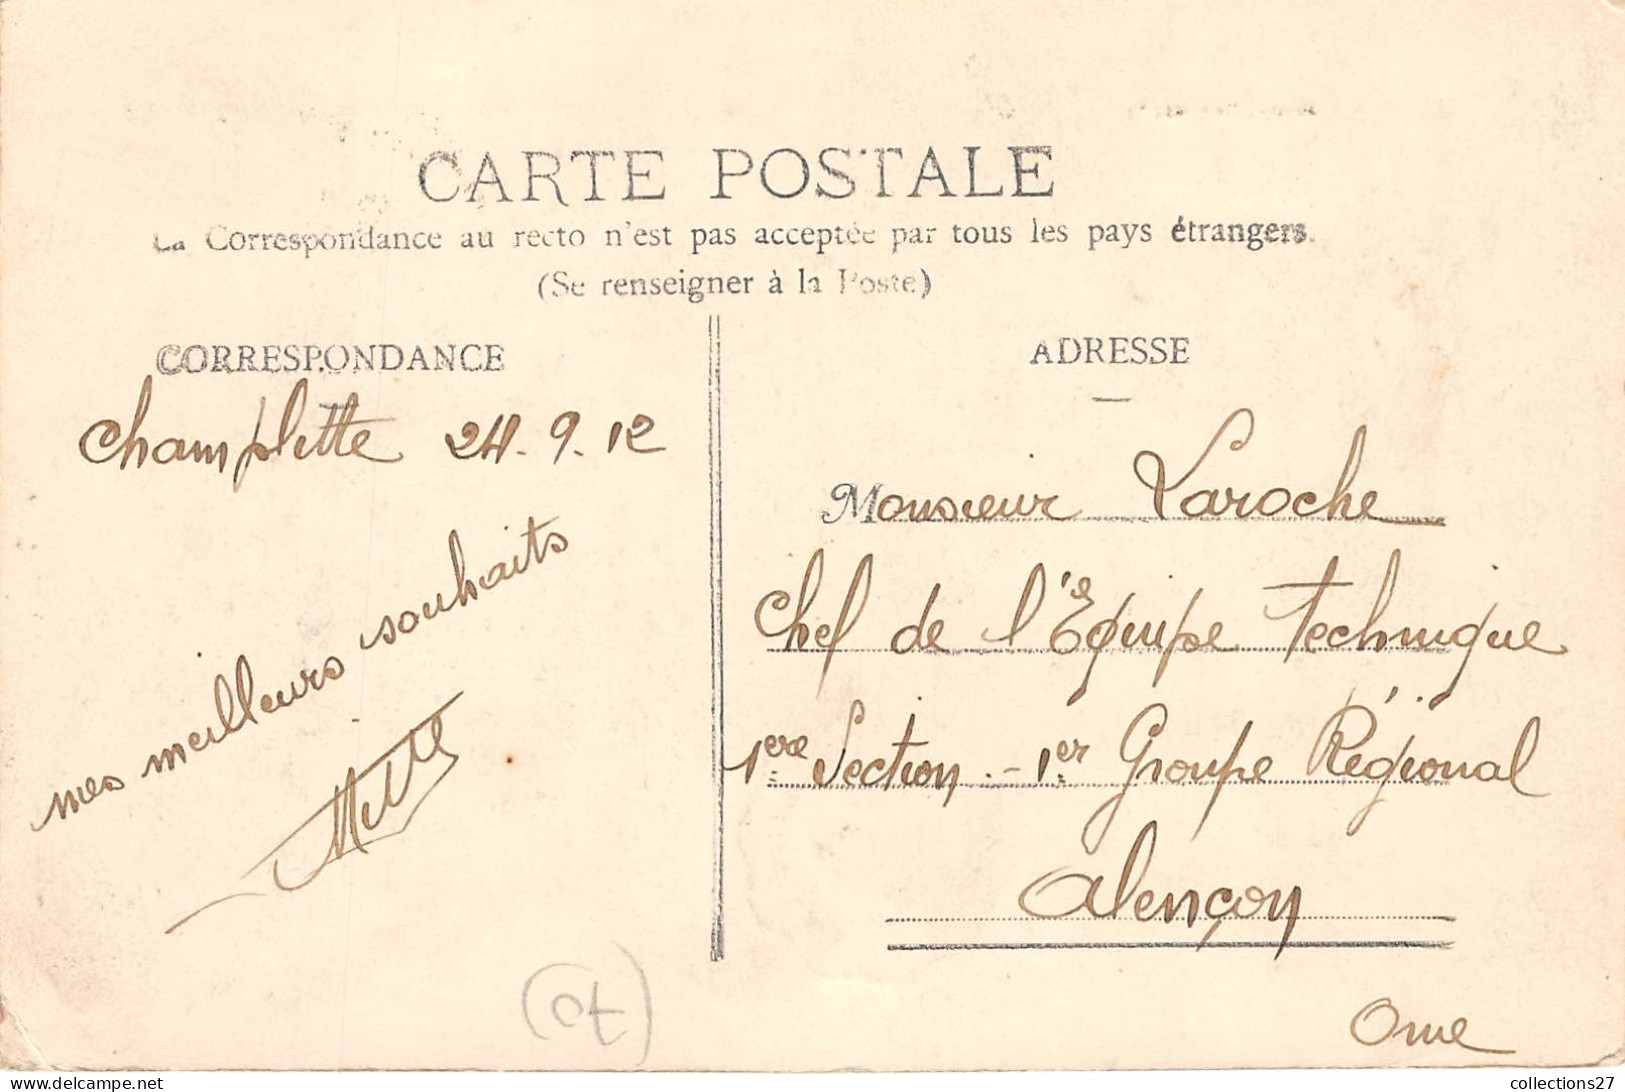 CARTE POSTALE
La Correspondance au recto n'est pas acceptée par tous les pays étrangers.
(Se renseigner à la Poste)
CORRESPONDANCE
Champlitte 24.9.12
mes meilleurs souhaits
ADRESSE
Monsieur Laroche
Chef de l'Equipe Technique
1ère Section - 1er Groupe Régional
Alençon
Orne
collections27